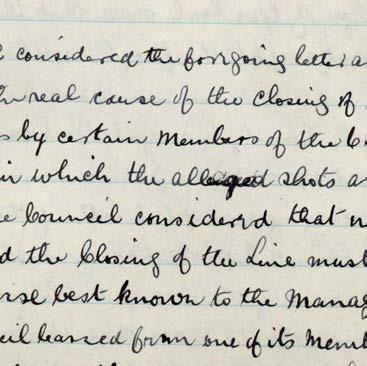 considered the foregoing letter a
real cause of the closing of
by certain Members of the C
in which the alleged shots a
Council considered that n
d the Closing of the Line must
rse best known to the Manag
cil learned from one of its Memb